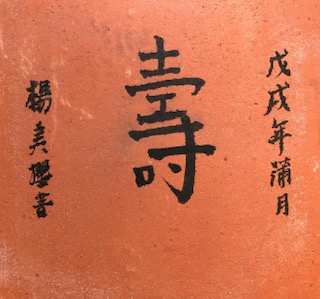 戊戌年蒲月
壽
楊美瓔書